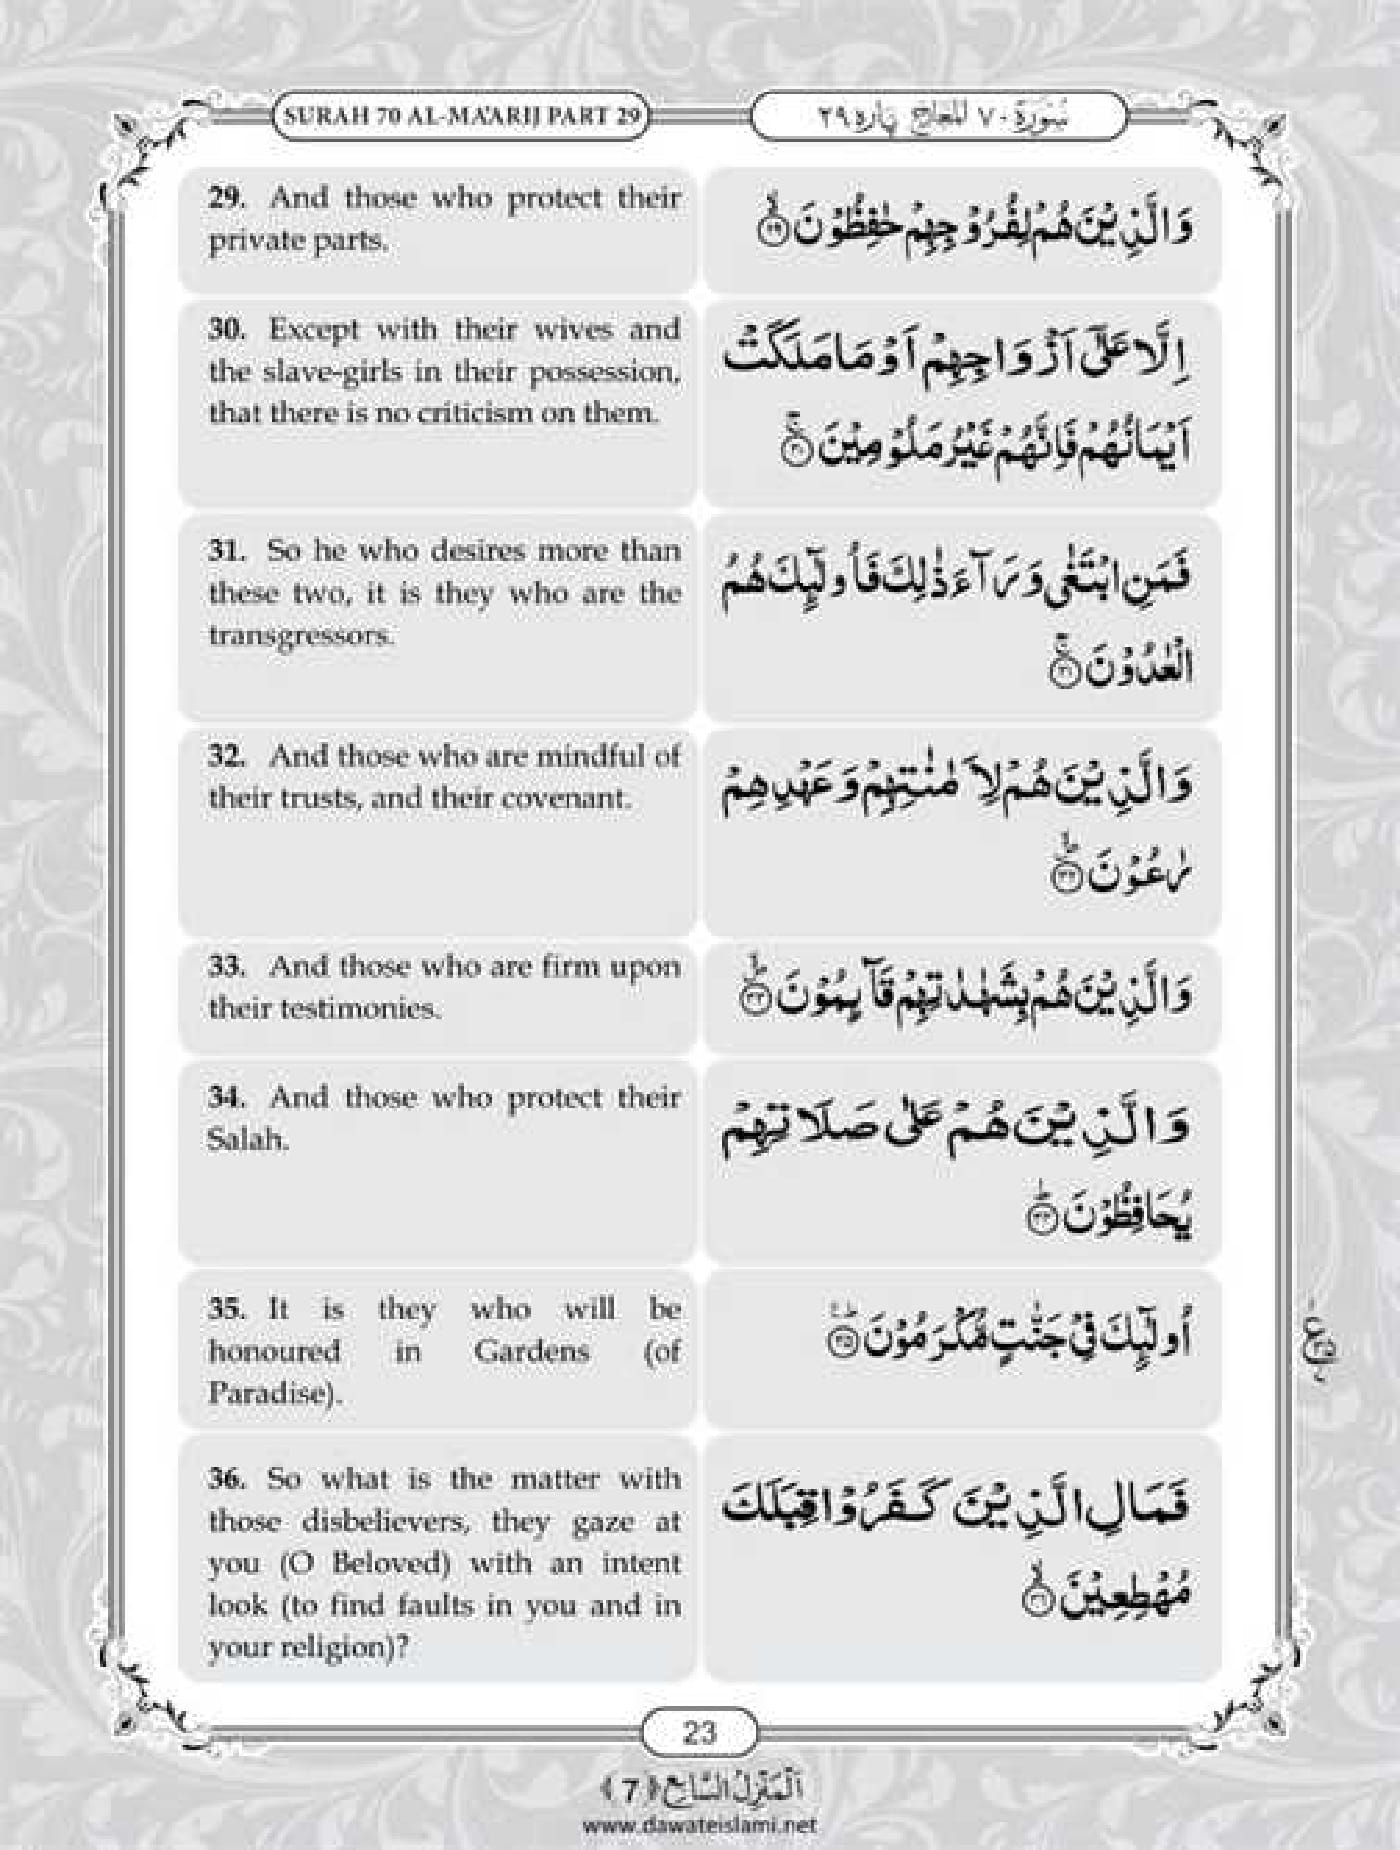 SURAH 70 AL-MA'ARIJ PART 29
سُوْرَة ٧٠ المعارج پاره ٢٩
29. And those who protect their
private parts.
وَالَّذِيْنَ هُمْ لِفُرُوْجِهِمْ حٰفِظُوْنَ ۙ﴿۲۹﴾
30. Except with their wives and
the slave-girls in their possession,
that there is no criticism on them.
اِلَّا عَلٰۤى اَزْوَاجِهِمْ اَوْ مَا مَلَكَتْ
اَيْمَانُهُمْ فَاِنَّهُمْ غَيْرُ مَلُوْمِيْنَ ۚ﴿۳۰﴾
31. So he who desires more than
these two, it is they who are the
transgressors.
فَمَنِ ابْتَغٰى وَرَآءَ ذٰلِكَ فَاُولٰٓئِكَ هُمُ
الْعٰدُوْنَ ۚ﴿۳۱﴾
32. And those who are mindful of
their trusts, and their covenant.
وَالَّذِيْنَ هُمْ لِاَمٰنٰتِهِمْ وَعَهْدِهِمْ
رٰعُوْنَ ﴿۳۲﴾
33. And those who are firm upon
their testimonies.
وَالَّذِيْنَ هُمْ بِشَهٰدٰتِهِمْ قَآئِمُوْنَ ﴿۳۳﴾
34. And those who protect their
Salah.
وَالَّذِيْنَ هُمْ عَلٰى صَلَاتِهِمْ
يُحَافِظُوْنَ ؕ﴿۳۴﴾
35. It is they who will be
honoured in Gardens (of
Paradise).
اُولٰٓئِكَ فِيْ جَنّٰتٍ مُّكْرَمُوْنَ ﴿۳۵﴾
36. So what is the matter with
those disbelievers, they gaze at
you (O Beloved) with an intent
look (to find faults in you and in
your religion)?
فَمَالِ الَّذِيْنَ كَفَرُوْا قِبَلَكَ
مُهْطِعِيْنَ ۙ﴿۳۶﴾
23
اَلْمَنْزِلُ السَّابِع ﴿7﴾
www.dawateislami.net